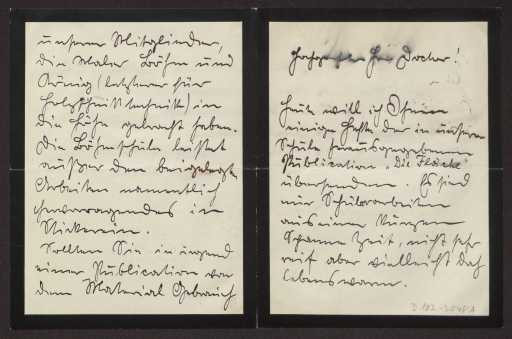 Hochgeehrter Herr Doctor!
Heute will ich Ihnen
einige Hefte der in unserer
Schule herausgegebenen
Publication „Die Fläche"
übersenden. Es sind
nur Schülerarbeiten
aus einer kurzen
Spanne Zeit, nicht sehr
reif aber vielleicht doch
lebenswarm.
unserer Mitglieder,
die Maler Böhm und
König (letzterer für
Holzschnitttechnik) in
die Höhe gebracht haben.
Die Böhmschule leistet
außer den beigelegten
Arbeiten namentlich
hervorragendes im
Stickereien.
Sollten Sie in irgend
einer Publication von
dem Material Gebrauch
D 102-2048 A